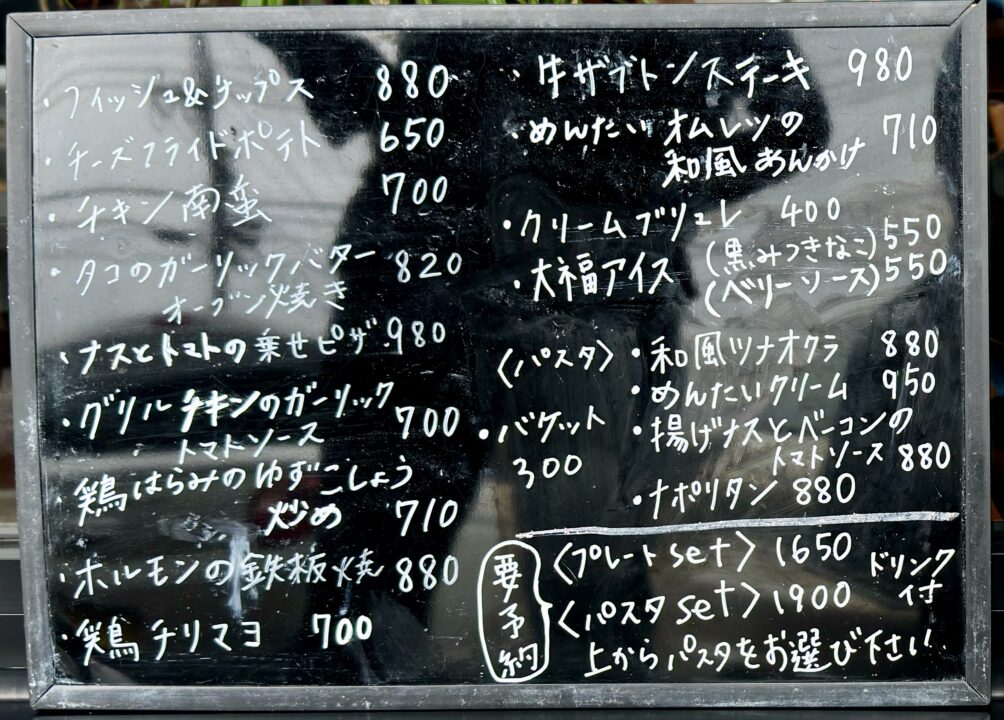 ・フィッシュ&チップス 880
・チーズフライドポテト 650
・チキン南蛮 700
・タコのガーリックバター 820
オーブン焼き
・ナスとトマトの乗せピザ 980
・グリルチキンのガーリック
トマトソース 700
・鶏はらみのゆずこしょう
炒め 710
・ホルモンの鉄板焼 880
・鶏チリマヨ 700
・牛ザブトンステーキ 980
・めんたいオムレツの
和風あんかけ 710
・クリームブリュレ 400
・大福アイス (黒みつきなこ) 550
(ベリーソース) 550
〈パスタ〉・和風ツナオクラ 880
・めんたいクリーム 950
・揚げナスとベーコンの
トマトソース 880
・ナポリタン 880
・バケット
300
要予約
〈プレートset〉1650
〈パスタset〉1900
ドリンク
付
上からパスタをお選び下さい.